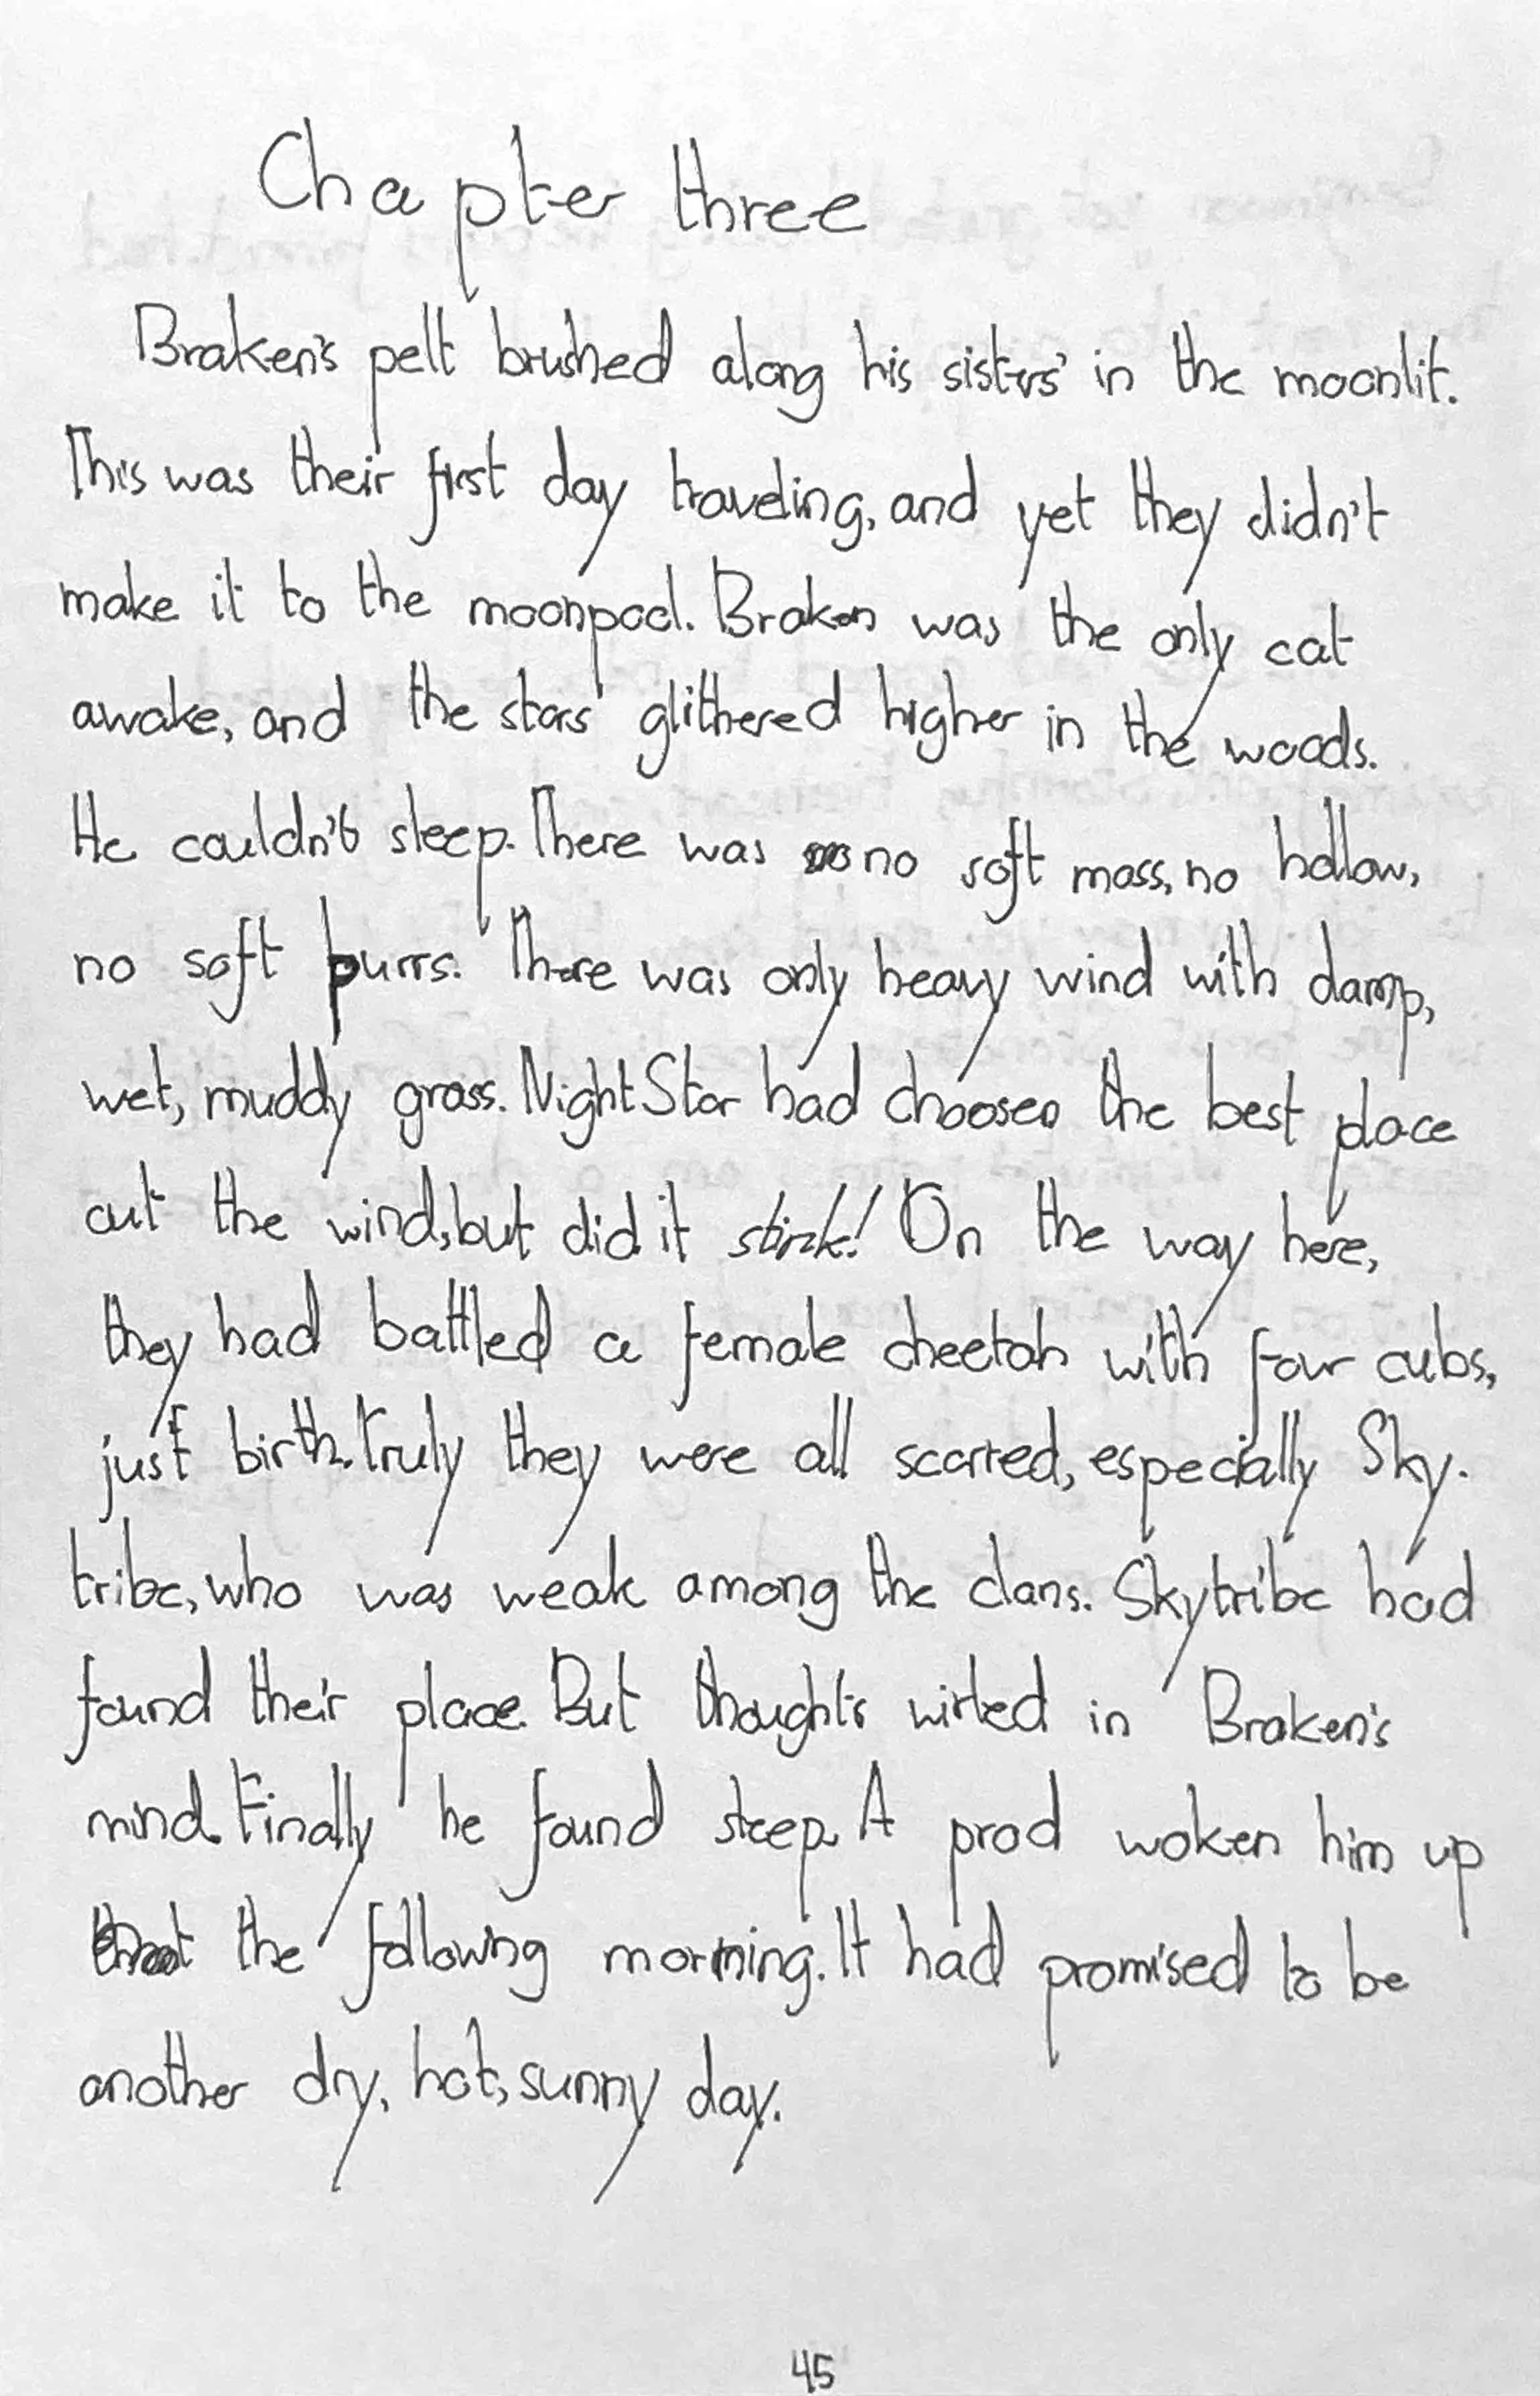 Chapter three
Braken's pelt brushed along his sisters' in the moonlit.
This was their first day traveling, and yet they didn't
make it to the moonpool. Braken was the only cat
awake, and the stars glithered higher in the woods.
He couldn't sleep. There was no soft moss, no hollow,
no soft purrs. There was only heavy wind with damp,
wet, muddy grass. NightStar had choosen the best place
out the wind, but did it stink! On the way here,
they had battled a female cheetah with four cubs,
just birth. Truly they were all scarred, especially Sky-
tribe, who was weak among the clans. Skytribe had
found their place. But thoughts wirled in Braken's
mind. Finally he found sleep. A prod woken him up
the following morning. It had promised to be
another dry, hot, sunny day.
45